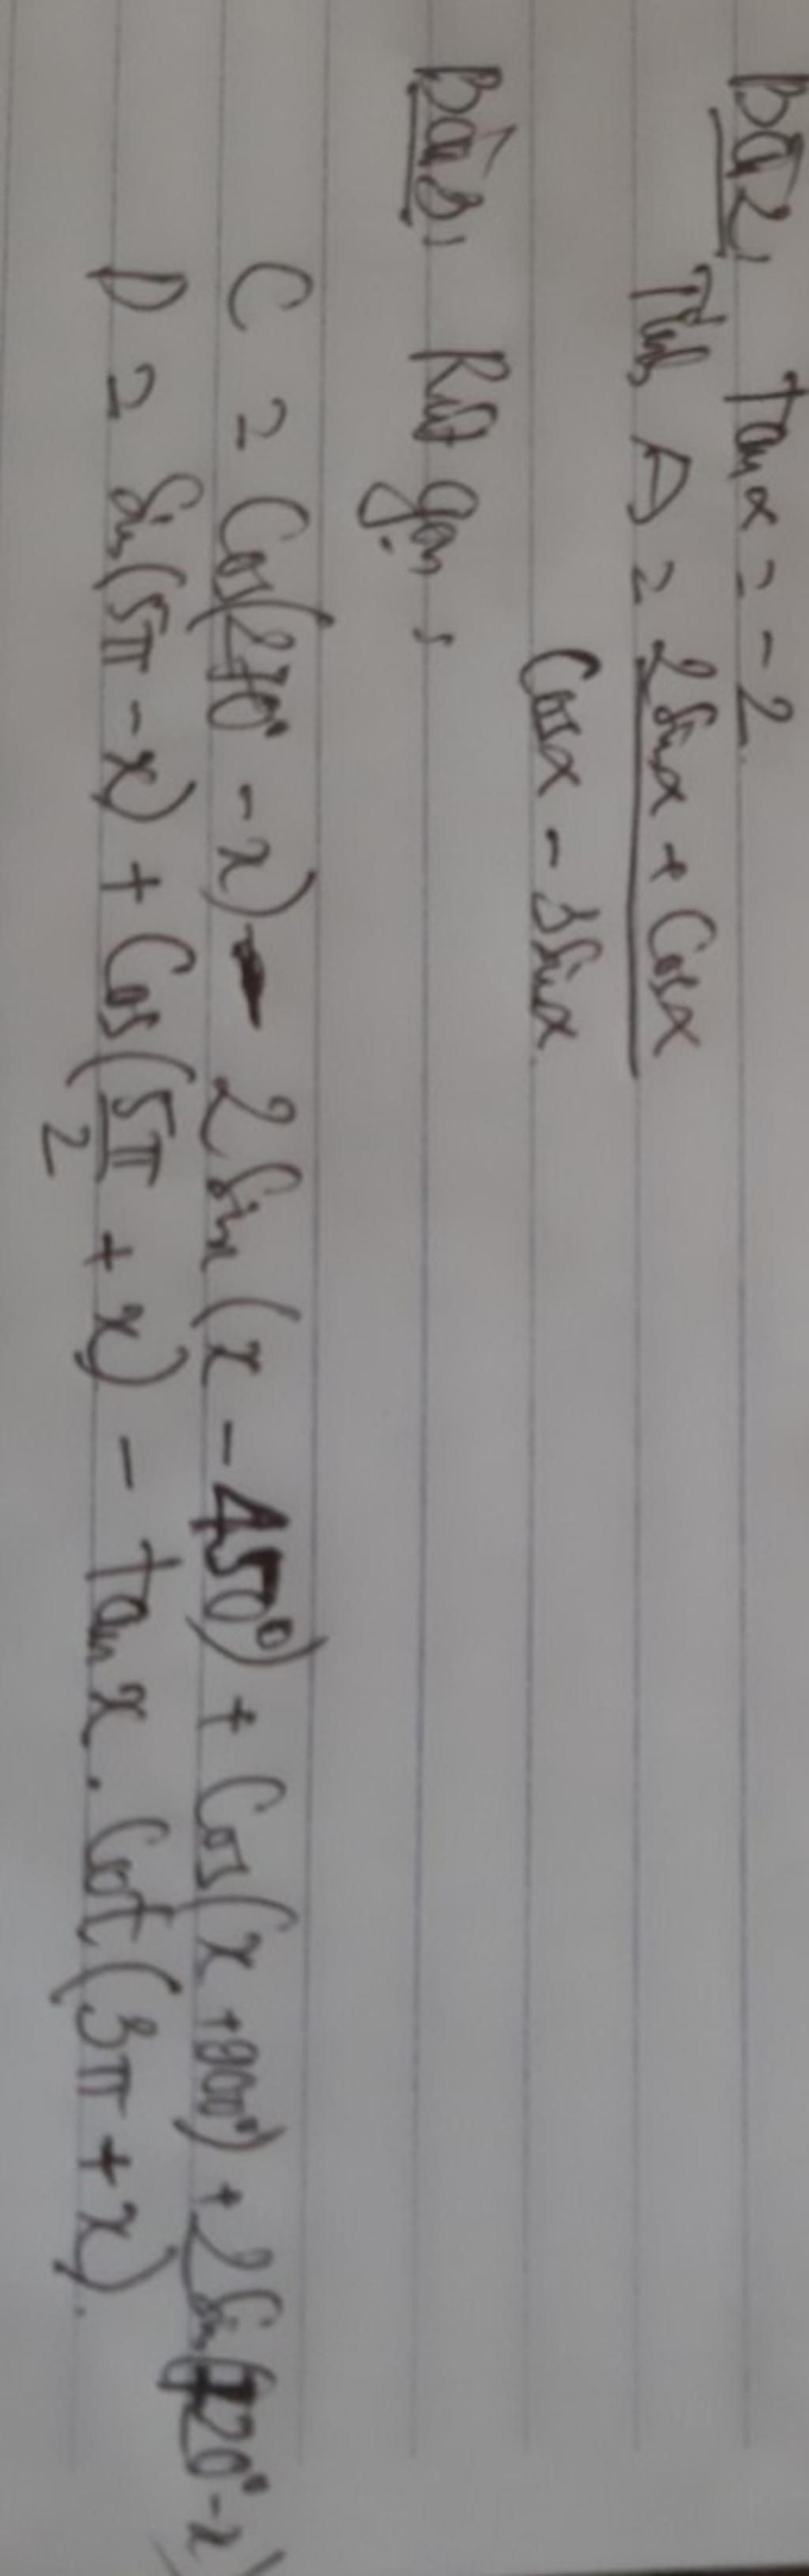 Bài 2, tan α = -2
Tính A = 2 sin α + cos α
cos α - 3 sin α
Bài 3, Rút gọn,
C = Cos(270° - x) - 2 Sin(x - 450°) + Cos(x + 900°) + 2 Sin(720° - x)
D = Sin(5π - x) + Cos(5π/2 + x) - tan x . Cot(3π + x).